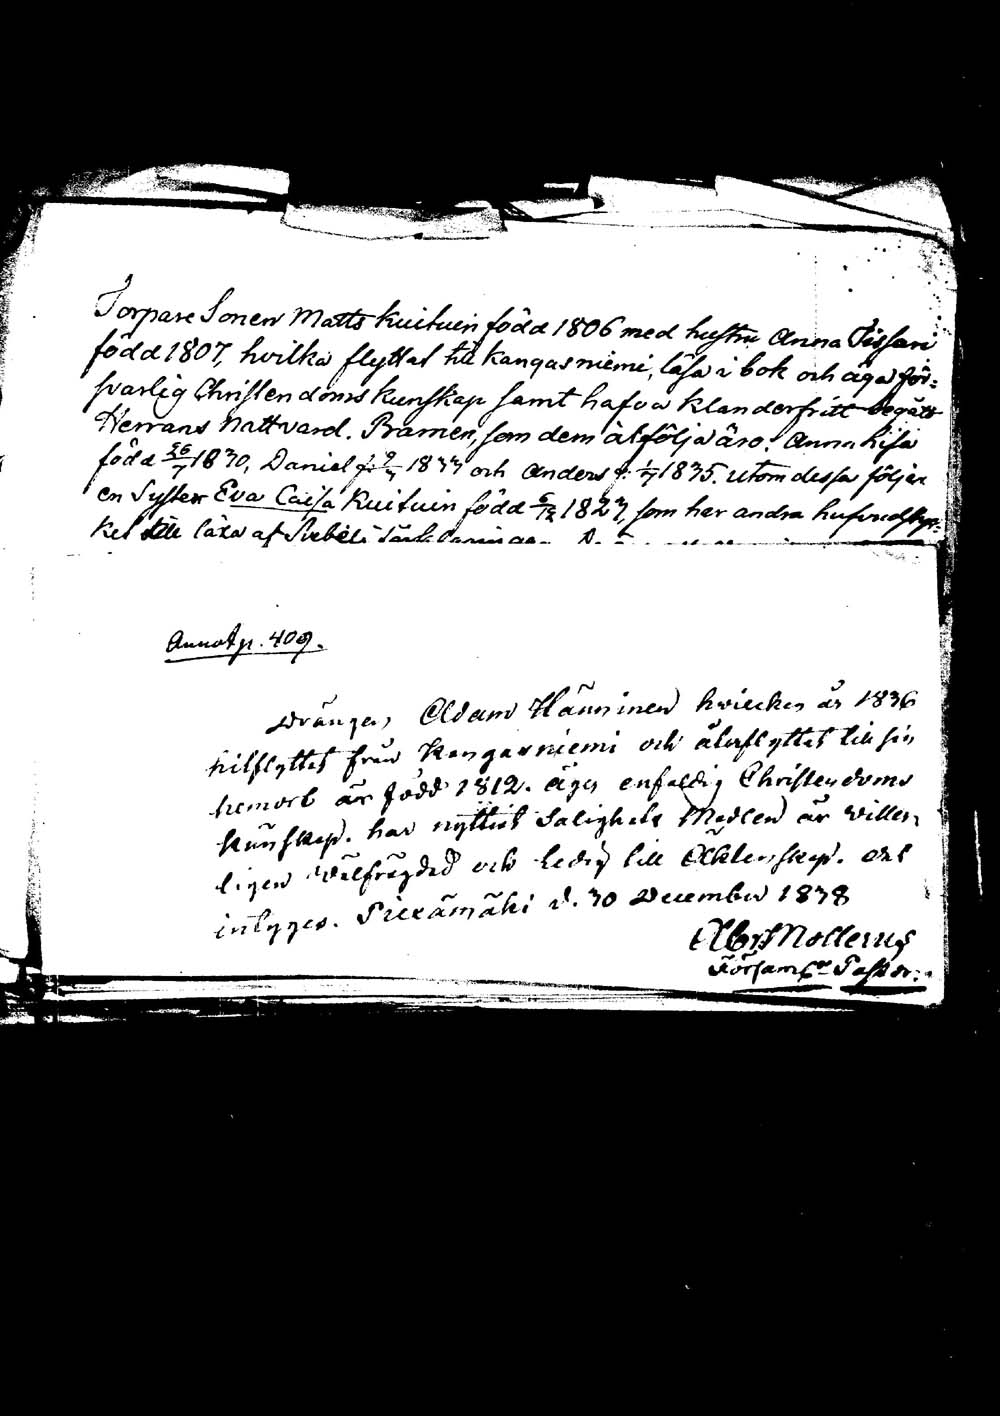 Torpare Sonen Matts Kuituin född 1806 med hustru Anna Tissari
född 1807, hvilka flyttat till Kangasniemi, läsa i bok och äga för=
svarlig Christendoms kunskap samt hafva klanderfritt begått
Herrans Nattvard. Barnen, som dem åtfölja äro: Anna Lisa
född 26/7 1830, Daniel f: 1833 och Anders f: 1835. utom dessa följer
en Syster Eva Caisa Kuituin född 6/12 1823, som har andra hufvudstyc=
ket till läxa af Svebelii
Annot p. 409.
Drängen Adam Hänninen hvilken år 1836
hitflyttat från Kangasniemi och återflyttat till sin
hemort är född 1812. äger enfaldig Christendoms
kunskap. har nyttjat Salighets Medlen är
ligen välfrägdad och ledig till Äktenskap. Det
intygges. Piexämäki d. 30 December 1838
Mollerus
Församl Pastor.